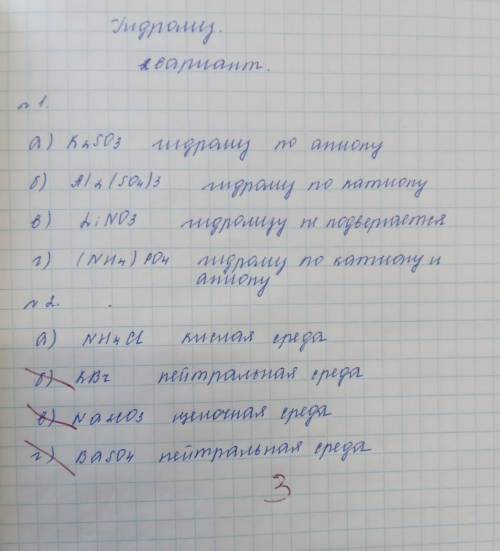 Гидролиз.
2 вариант.
№ 1.
а) K2SO3 гидролиз по аниону
б) Al2(SO4)3 гидролиз по катиону
в) LiNO3 гидролизу не подвергается
г) (NH4) PO4 гидролиз по катиону и
аниону
№ 2.
а) NH4Cl кислая среда
б) KBr нейтральная среда
в) щелочная среда
г) BaSO4 нейтральная среда
3